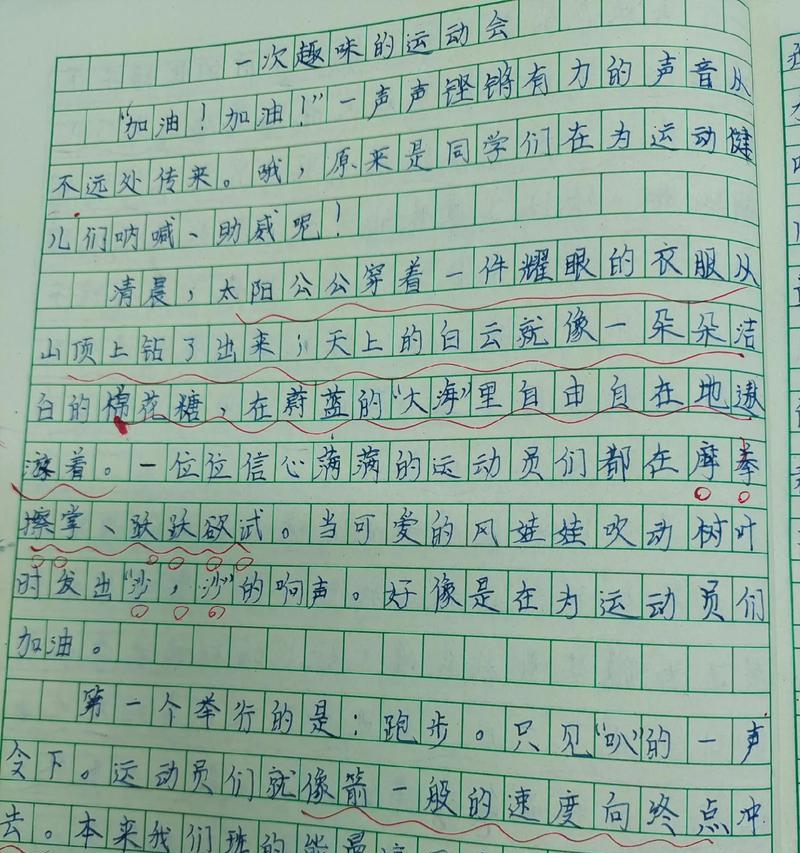 一次趣味的运动会
“加油！加油！”一声声铿锵有力的声音从
不远处传来。哦，原来是同学们在为运动健
儿们呐喊、助威呢！
清晨，太阳公公穿着一件耀眼的衣服从
山顶上钻了出来；天上的白云就像一朵朵洁
白的棉花糖，在蔚蓝的“大海”里自由自在地遨
游着。一位位信心满满的运动员们都在摩拳
擦掌、跃跃欲试。当可爱的风娃娃吹动树叶
时发出“沙，沙”的响声。好像是在为运动员们
加油。
第一个举行的是：跑步。只见“叭”的一声
令下。运动员们就像箭一般的速度向终点冲
去。本来我们班的能最